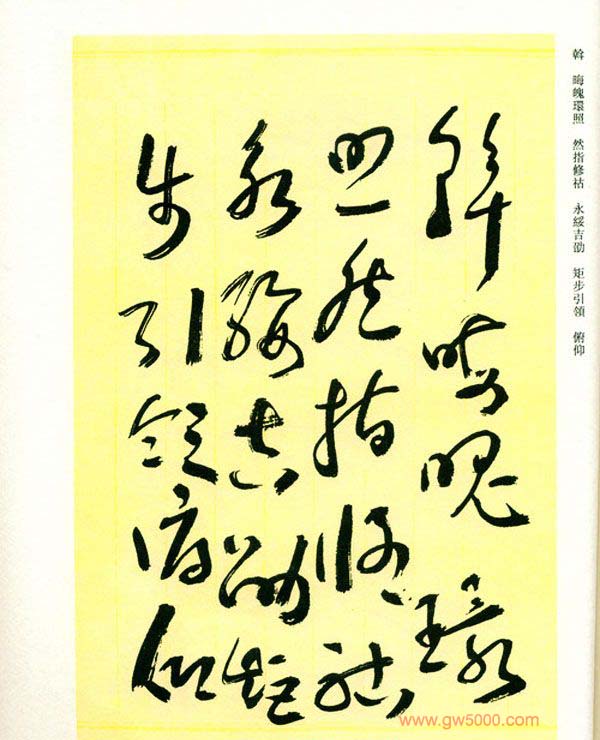 斡　晦魄環照　然指修祜　永綏吉劭　矩步引領　俯仰
斡晦魄環
照然指修祜
永綏吉劭矩
步引領俯仰
www.gw5000.com